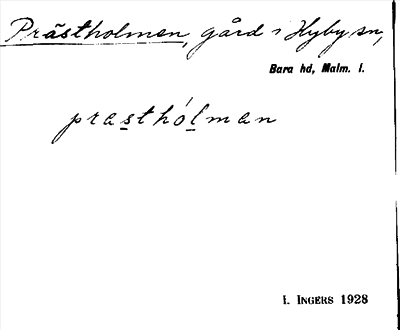 Prästholmen, gård i Hyby sn,
Bara hd, Malm. l.
prasthólman
I. INGERS 1928